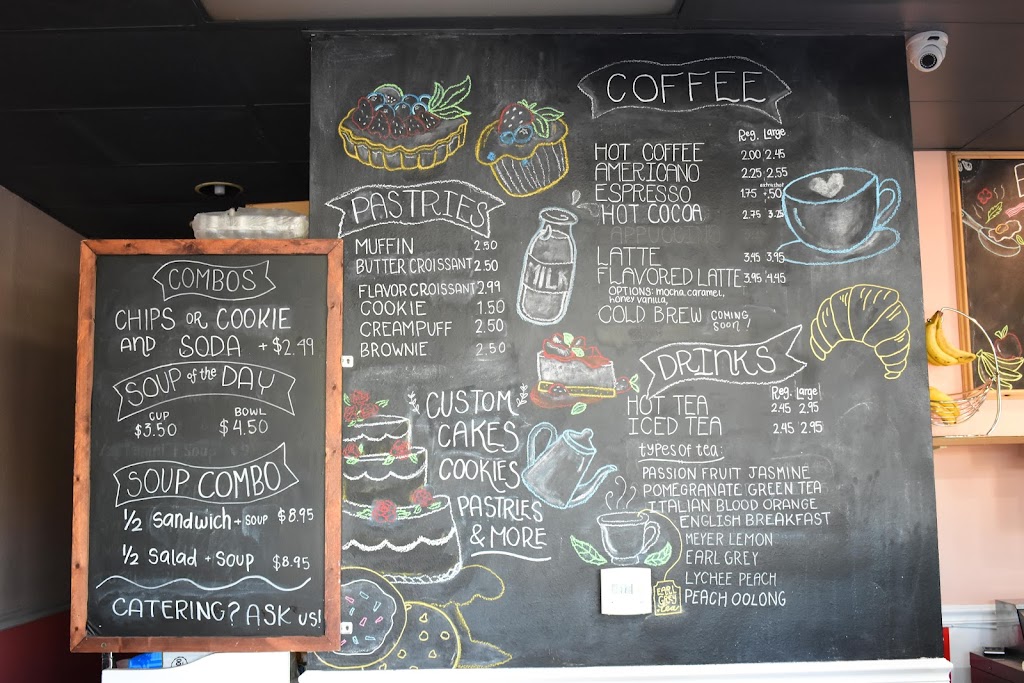 COMBOS
CHIPS OR COOKIE
AND SODA + $2.49
SOUP of the DAY
CUP BOWL
$3.50 $4.50
SOUP COMBO
1/2 Sandwich + SOUP $8.95
1/2 Salad + Soup $8.95
CATERING? ASK us!
PASTRIES
MUFFIN 2.50
BUTTER CROISSANT 2.50
FLAVOR CROISSANT 2.99
COOKIE 1.50
CREAMPUFF 2.50
BROWNIE 2.50
MILK
CUSTOM
CAKES
COOKIES
PASTRIES
& MORE
COFFEE
Reg. Large
HOT COFFEE 2.00 2.45
AMERICANO 2.25 2.55
extra shot
ESPRESSO 1.75 +.50
HOT COCOA 2.75 3.25
LATTE 3.45 3.95
FLAVORED LATTE 3.95 4.45
OPTIONS: mocha, caramel,
honey vanilla,
COLD BREW COMING
SOON!
DRINKS
Reg. Large
HOT TEA 2.45 2.95
ICED TEA 2.45 2.95
types of tea:
PASSION FRUIT JASMINE
POMEGRANATE GREEN TEA
ITALIAN BLOOD ORANGE
ENGLISH BREAKFAST
MEYER LEMON
EARL GREY
LYCHEE PEACH
PEACH OOLONG
EARL
GREY
tea